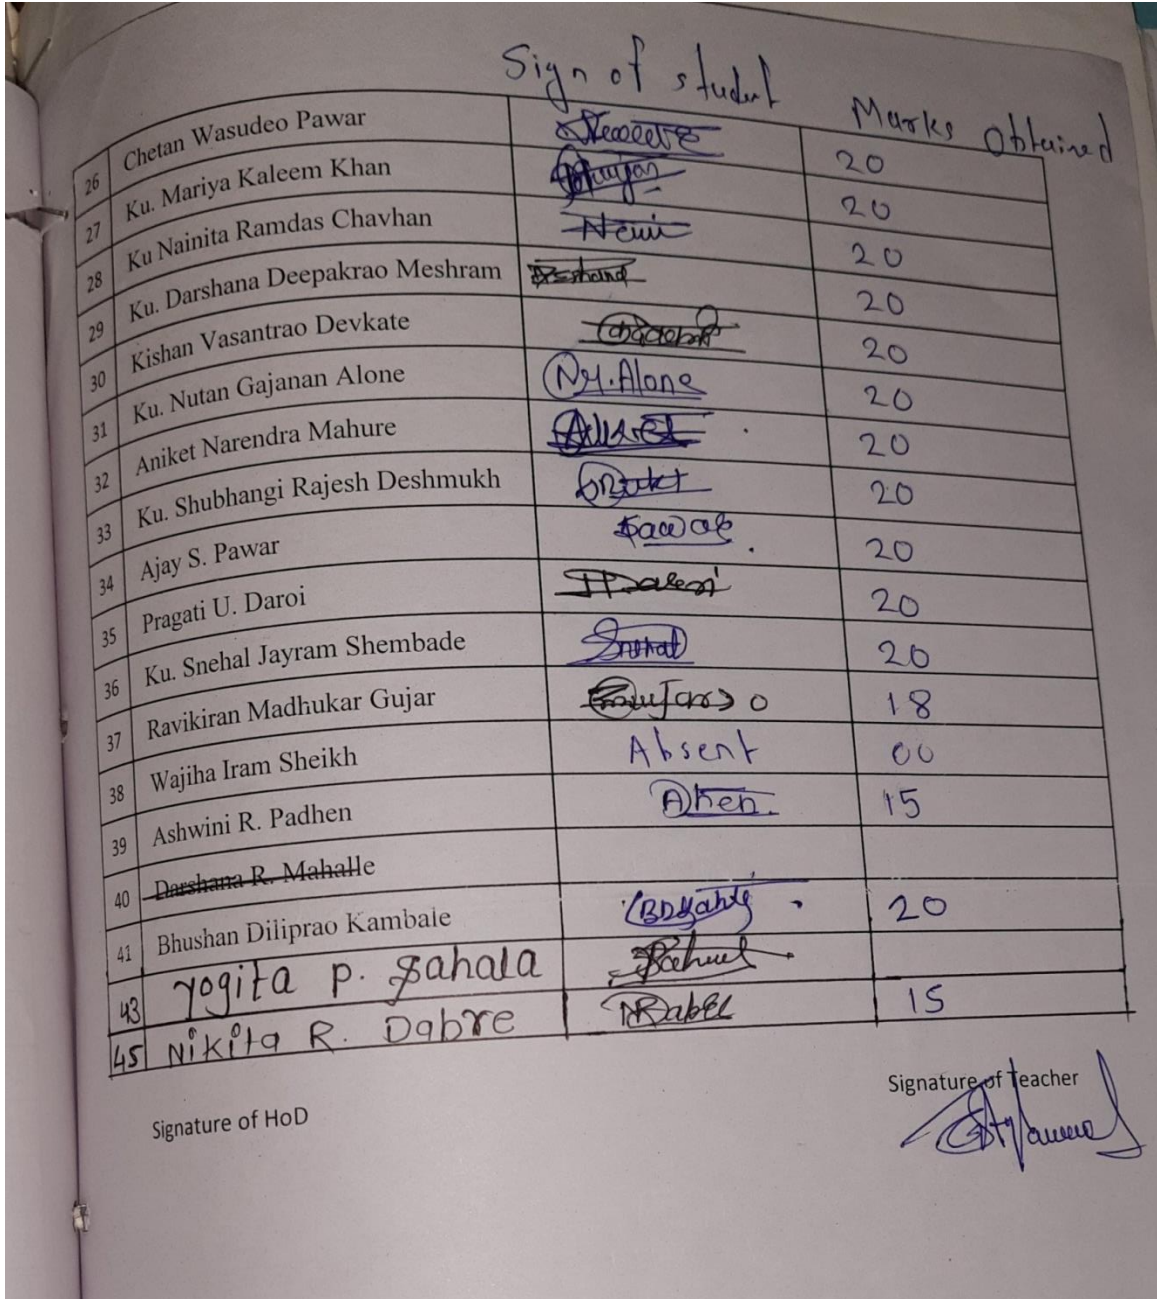 Sign of student Marks Obtained
26 Chetan Wasudeo Pawar 20
27 Ku. Mariya Kaleem Khan 20
28 Ku Nainita Ramdas Chavhan 20
29 Ku. Darshana Deepakrao Meshram 20
30 Kishan Vasantrao Devkate 20
31 Ku. Nutan Gajanan Alone N.G.Alone 20
32 Aniket Narendra Mahure 20
33 Ku. Shubhangi Rajesh Deshmukh 20
34 Ajay S. Pawar 20
35 Pragati U. Daroi 20
36 Ku. Snehal Jayram Shembade Snehal 20
37 Ravikiran Madhukar Gujar 18
38 Wajiha Iram Sheikh Absent 00
39 Ashwini R. Padhen 15
40 Darshana R. Mahalle
41 Bhushan Diliprao Kambale 20
43 Yogita P. Sahala
45 Nikita R. Dabre 15
Signature of HoD Signature of Teacher